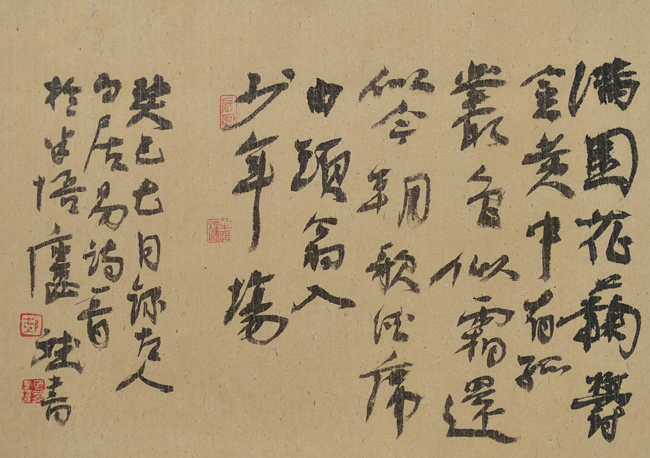 滿園花菊鬱
金黃中有孤
叢色似霜還
似今朝歌酒席
白頭翁入
少年場
癸巳七月錄古人
白居易詩一首
於半悟廬 斌書